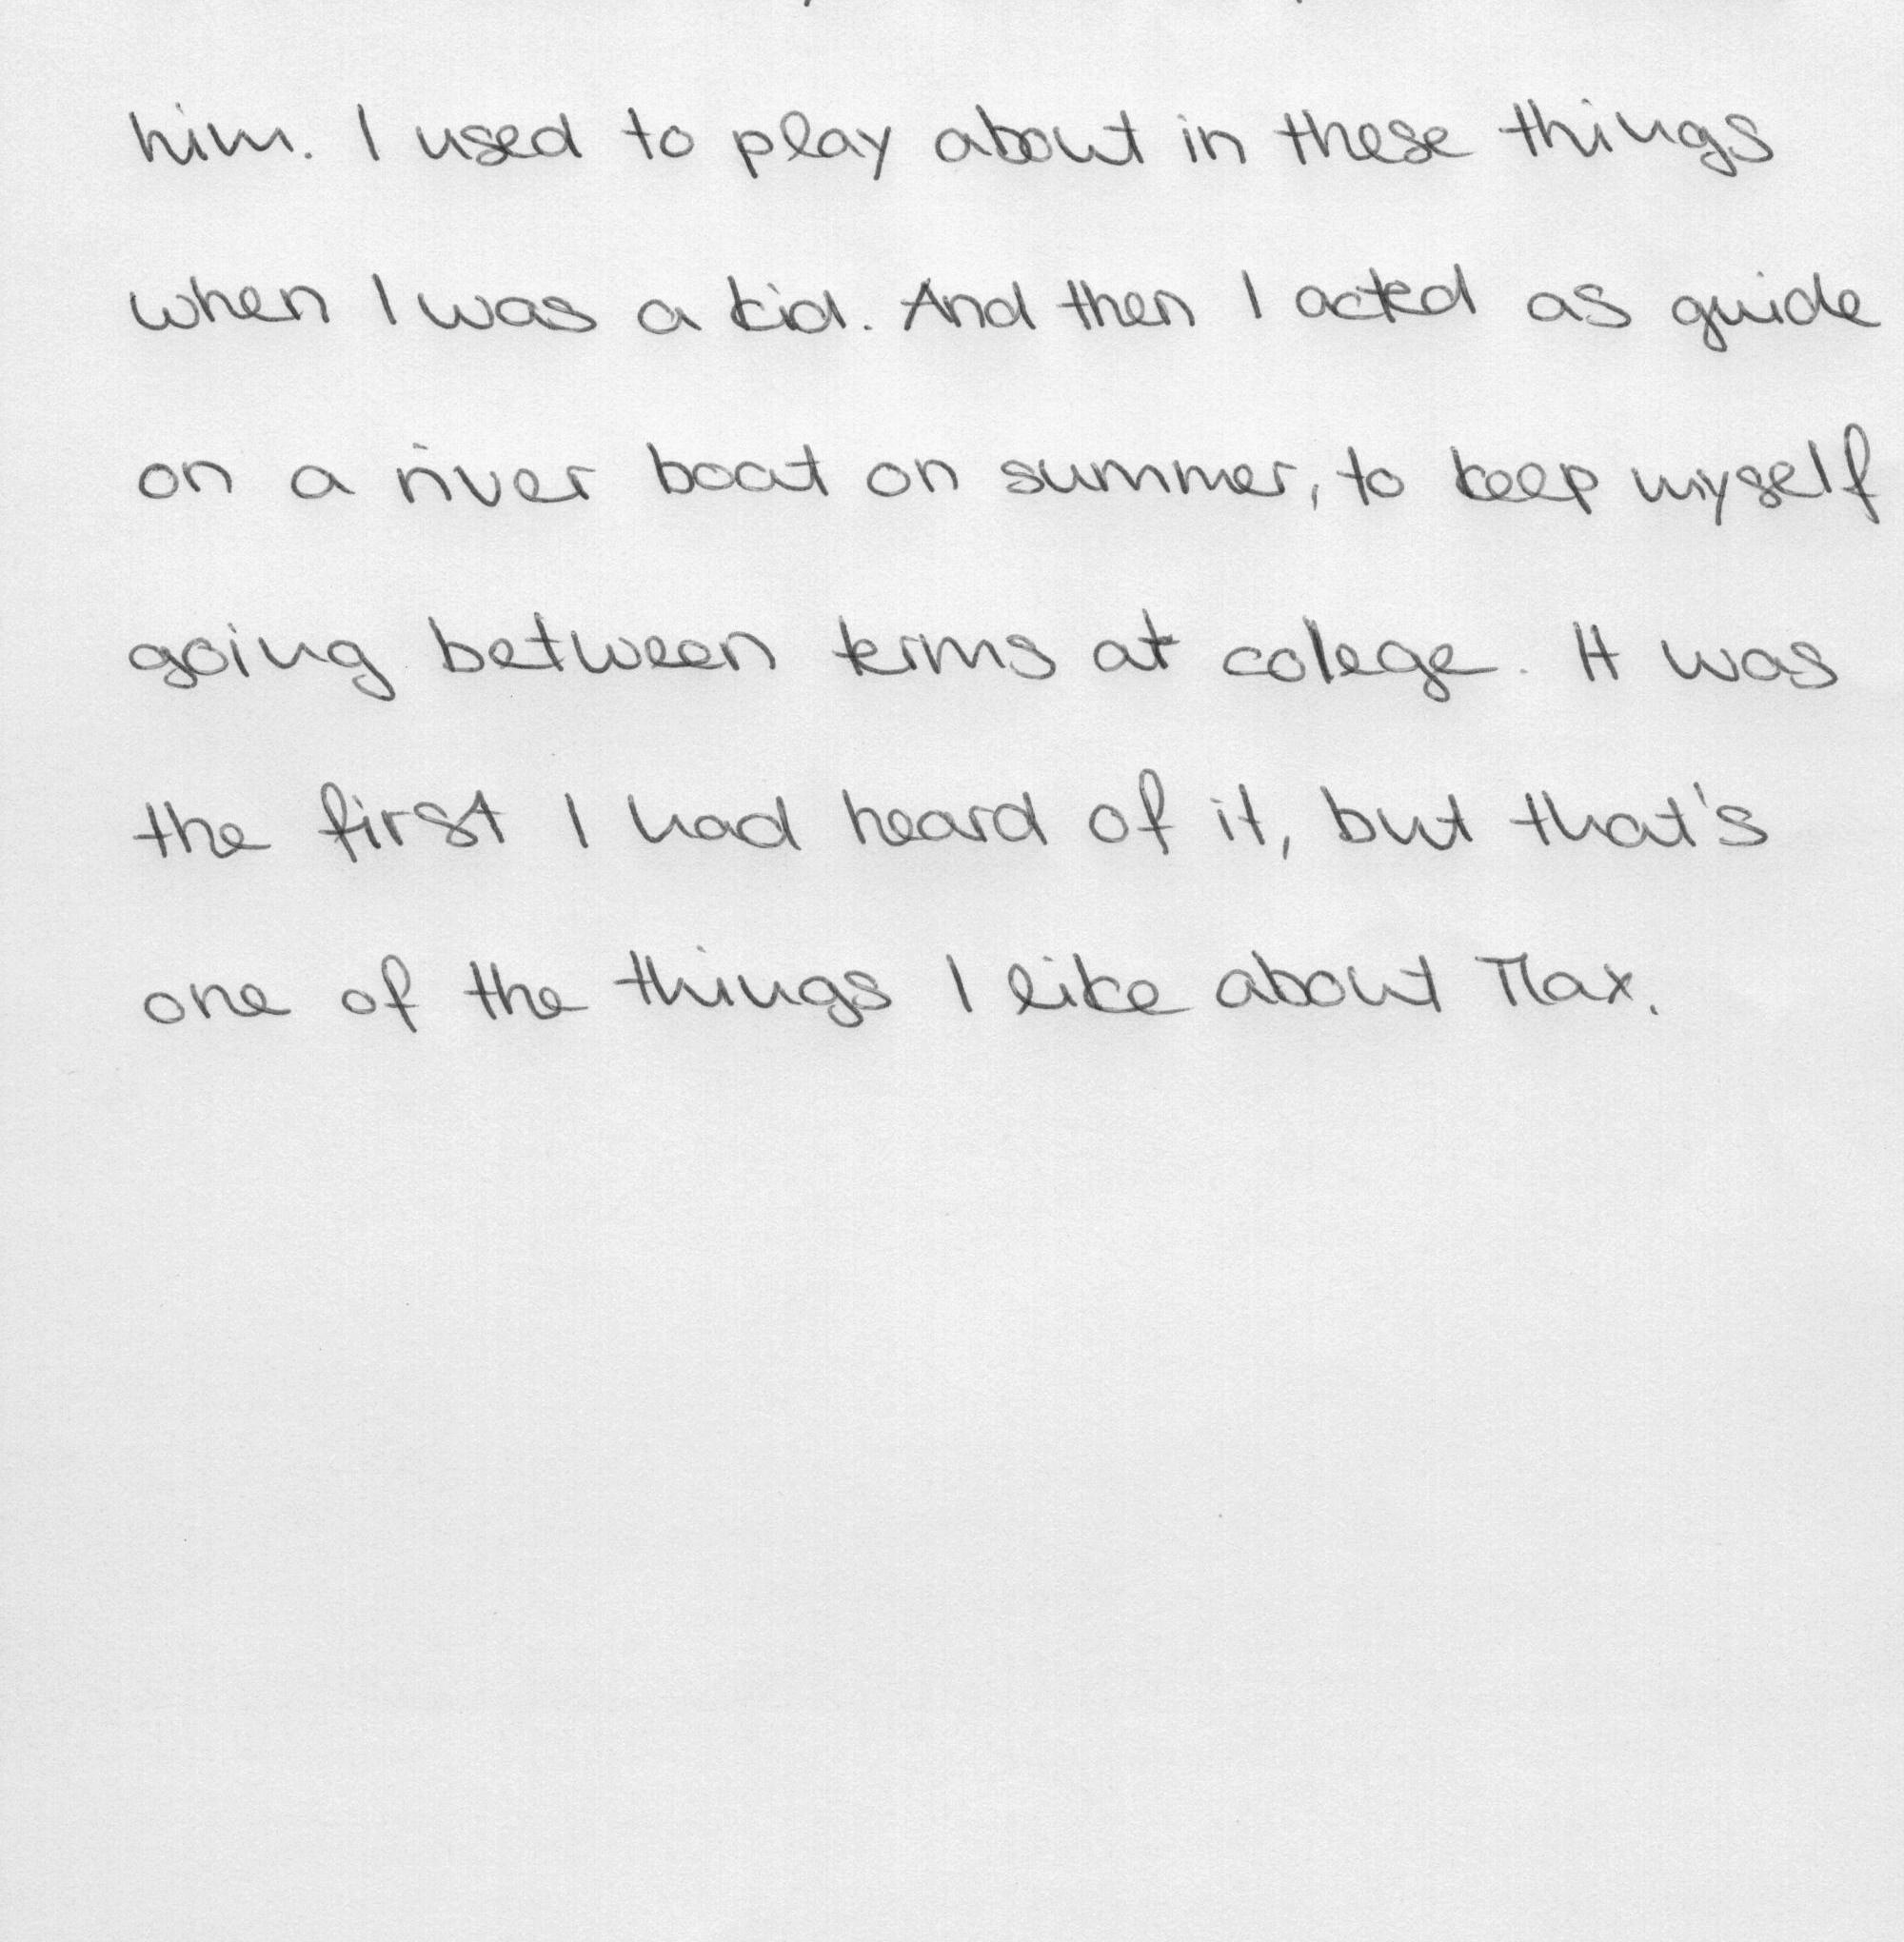 him. I used to play about in these things
when I was a kid. And then I acted as guide
on a river boat on summer, to keep myself
going between terms at colege. It was
the first I had heard of it, but that's
one of the things I like about Max.